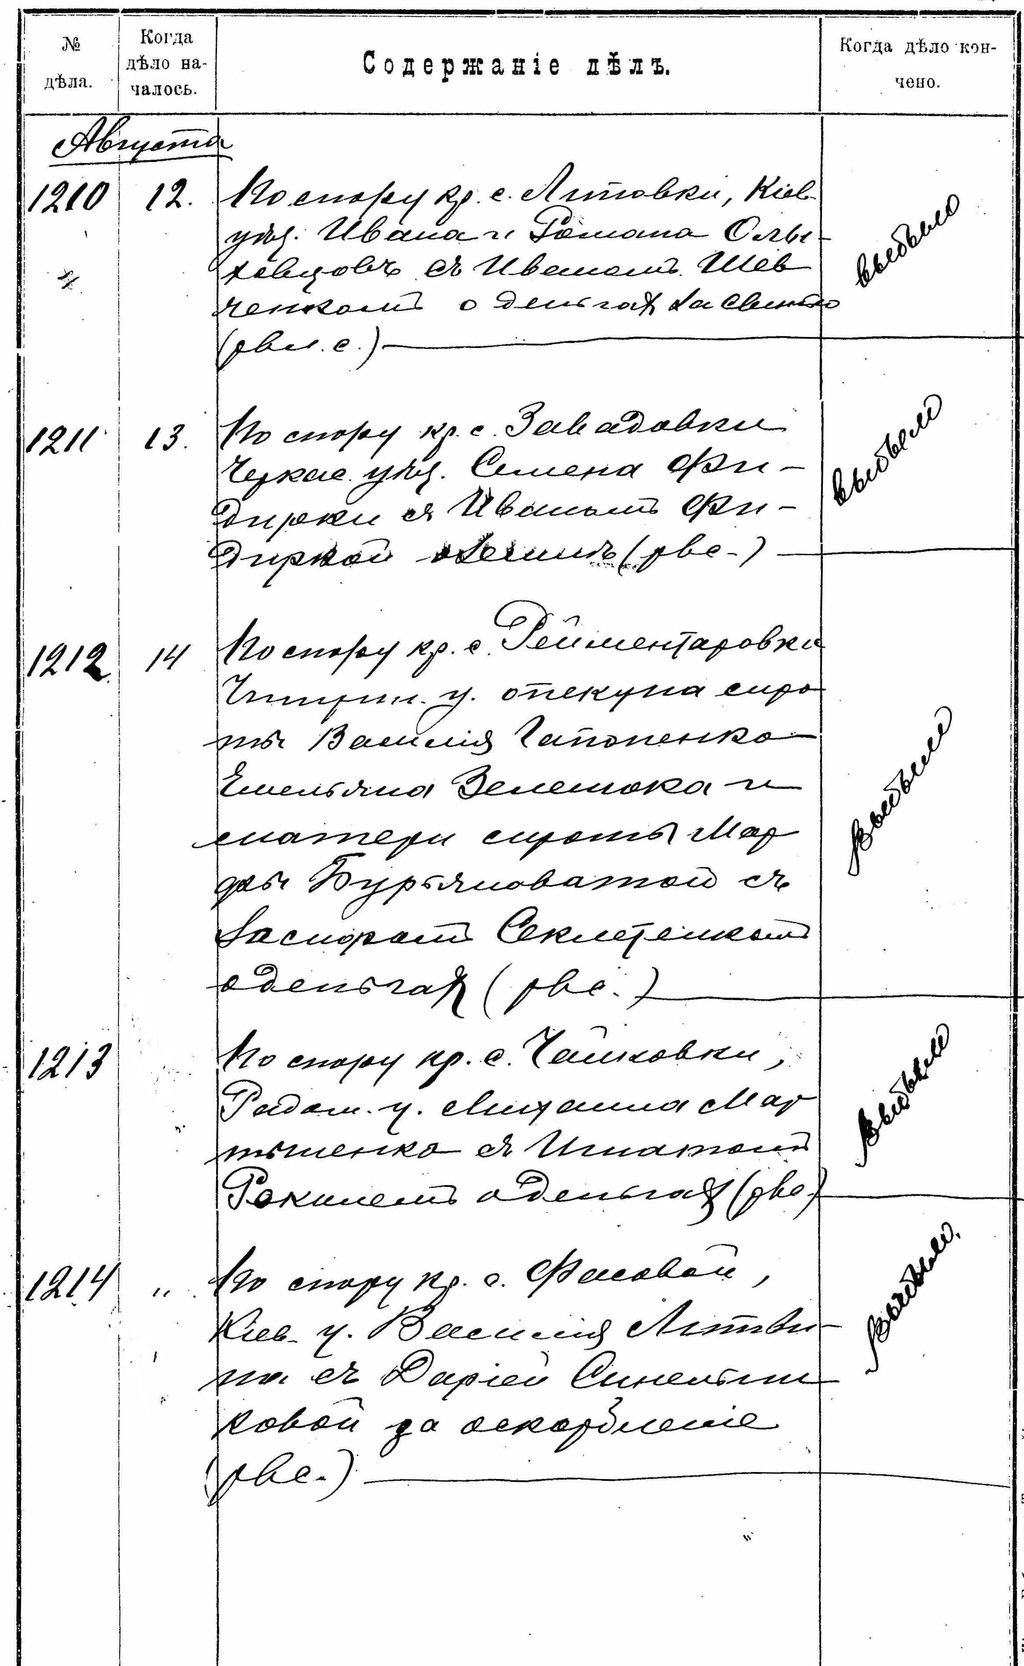 № дѣла.
Когда дѣло началось.
Содержаніе дѣлъ.
Когда дѣло кончено.
Августа
1210 12. По спору кр. с. Литовки, Кіев.
уѣз. Ивана и Романа Оль-
ховцовъ съ Иваномъ Шев
ченкомъ о деньгах за
выбыло
1211 13. По спору кр. с. Завадовки
Черкас. уѣз. Семена Фи-
дирки съ Иваномъ Фи-
диркой о земли (рвс.)
выбыло
1212 14 По спору кр. с. Рейментаровки
Чигирин. у. опекуна сиро
ты Василія Гапоненко
Емельяна и
матери сироты Мар
фы Бурьяноватой съ
Каспоромъ
о деньгах (рвс.)
выбыло
1213 По спору кр. с. Чайковки,
Радом. у. Михаила Мар
тыненко съ Игнатомъ
о деньгах (рвс)
выбыло
1214 " По спору кр. с. Фасовой,
Кіев. у. Василія Литви-
на съ Даріей Синельни
ковой за оскорбленіе
(рвс.)
выбыло.